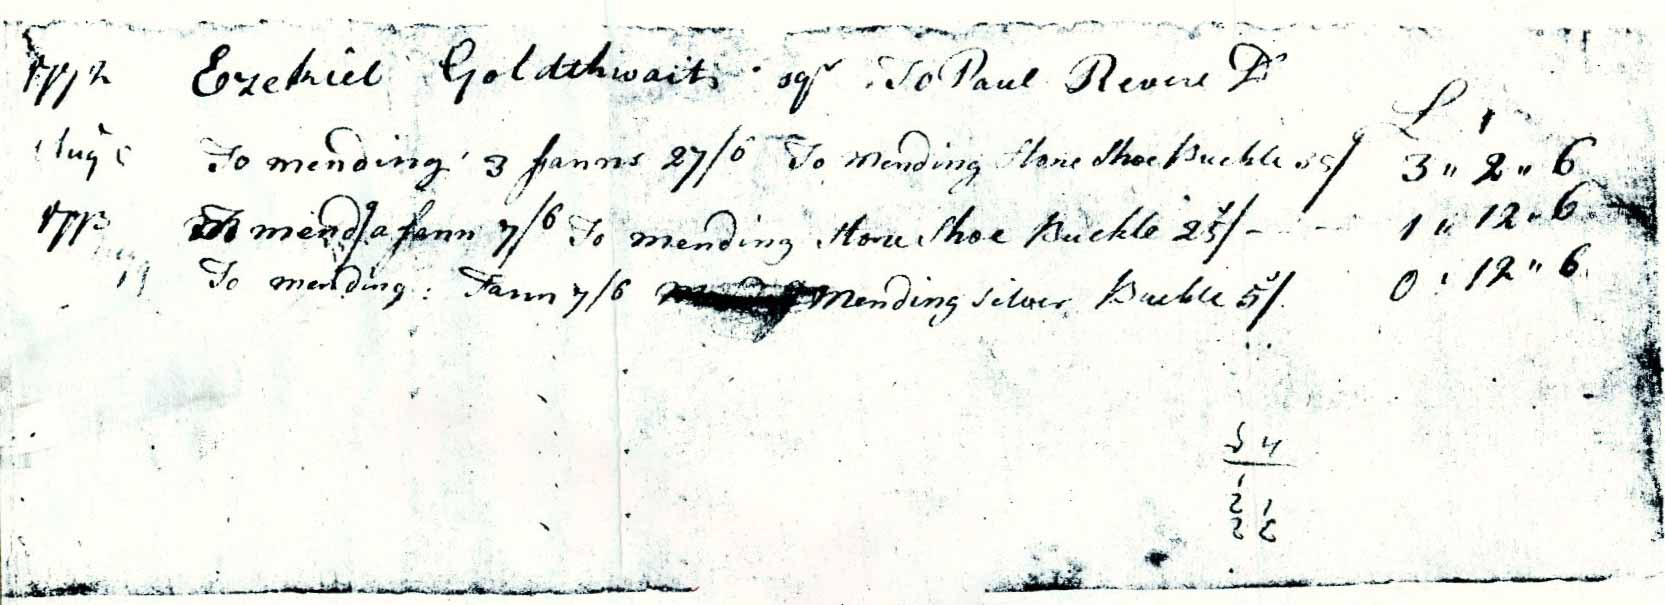 1772 Ezekiel Goldthwait Esqr To Paul Revere Dr
£ s
Augt To mending 3 fanns 27/6 To Mending Stone Shoe Buckle 35/ 3 " 2 " 6
1773 To mendg a fann 7/6 To mending Stone Shoe Buckle 25/ - - - 1 " 12 " 6
To mending : Fann 7/6 Mending Silver Buckle 5/ 0 " 12 " 6